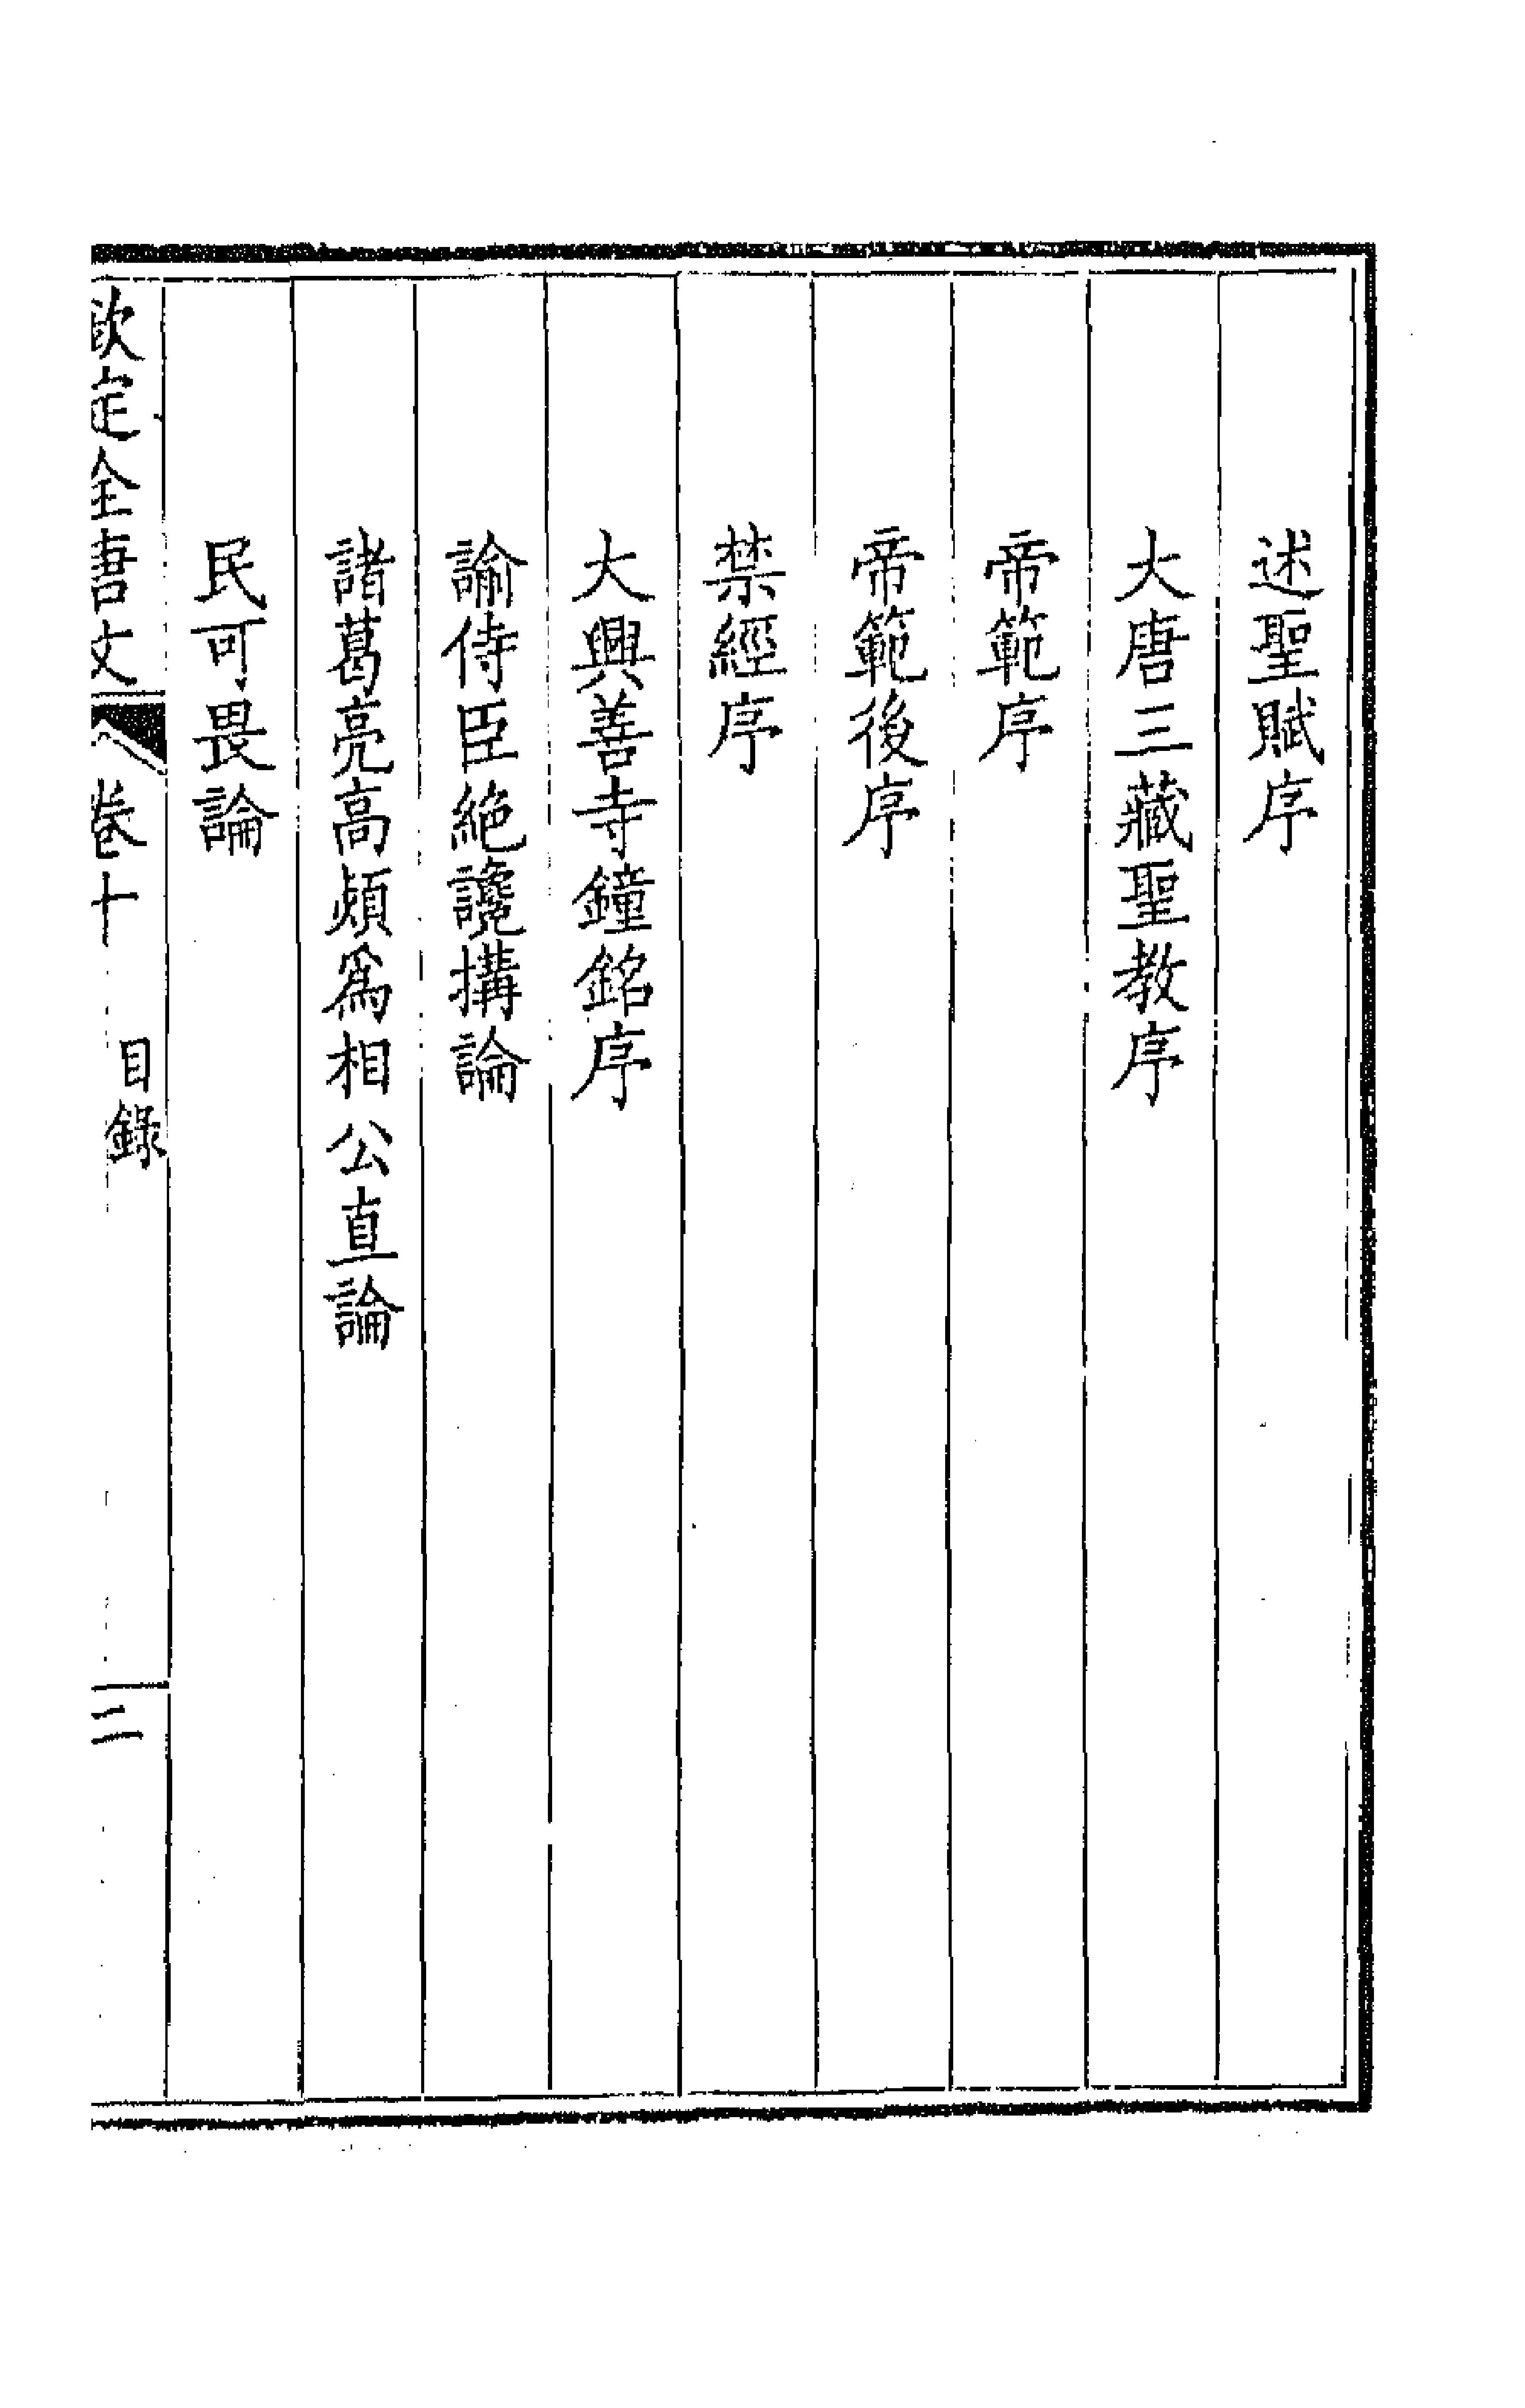 述聖賦序
大唐三藏聖教序
帝範序
帝範後序
禁經序
大興善寺鐘銘序
諭侍臣絕讒搆論
諸葛亮高熲爲相公直論
民可畏論
欽定全唐文 卷十 目錄 三